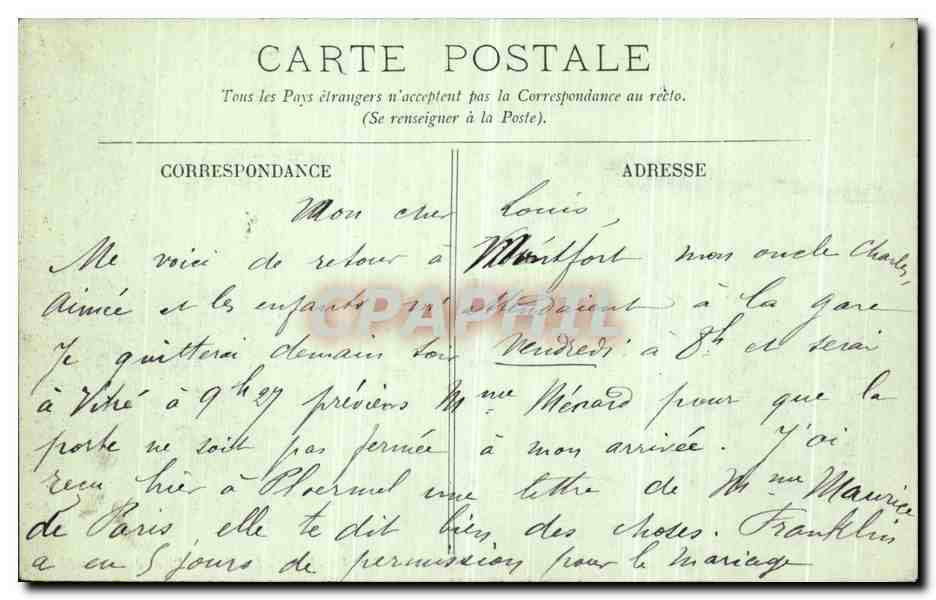 CARTE POSTALE
Tous les Pays étrangers n'acceptent pas la Correspondance au recto.
(Se renseigner à la Poste).
CORRESPONDANCE
ADRESSE
Mon cher Louis,
Me voici de retour à Montfort mon oncle Charles,
Aimée et les enfants m'attendaient à la gare
Je quitterai demain soir Vendredi à 8h et serai
à Vitré à 9h27 préviens Mme Ménard pour que la
porte ne soit pas fermée à mon arrivée. J'ai
reçu hier à Ploermel une lettre de Mme Maurice
de Paris, elle te dit bien des choses. Franklin
a eu 5 jours de permission pour le mariage
CPAPHIL